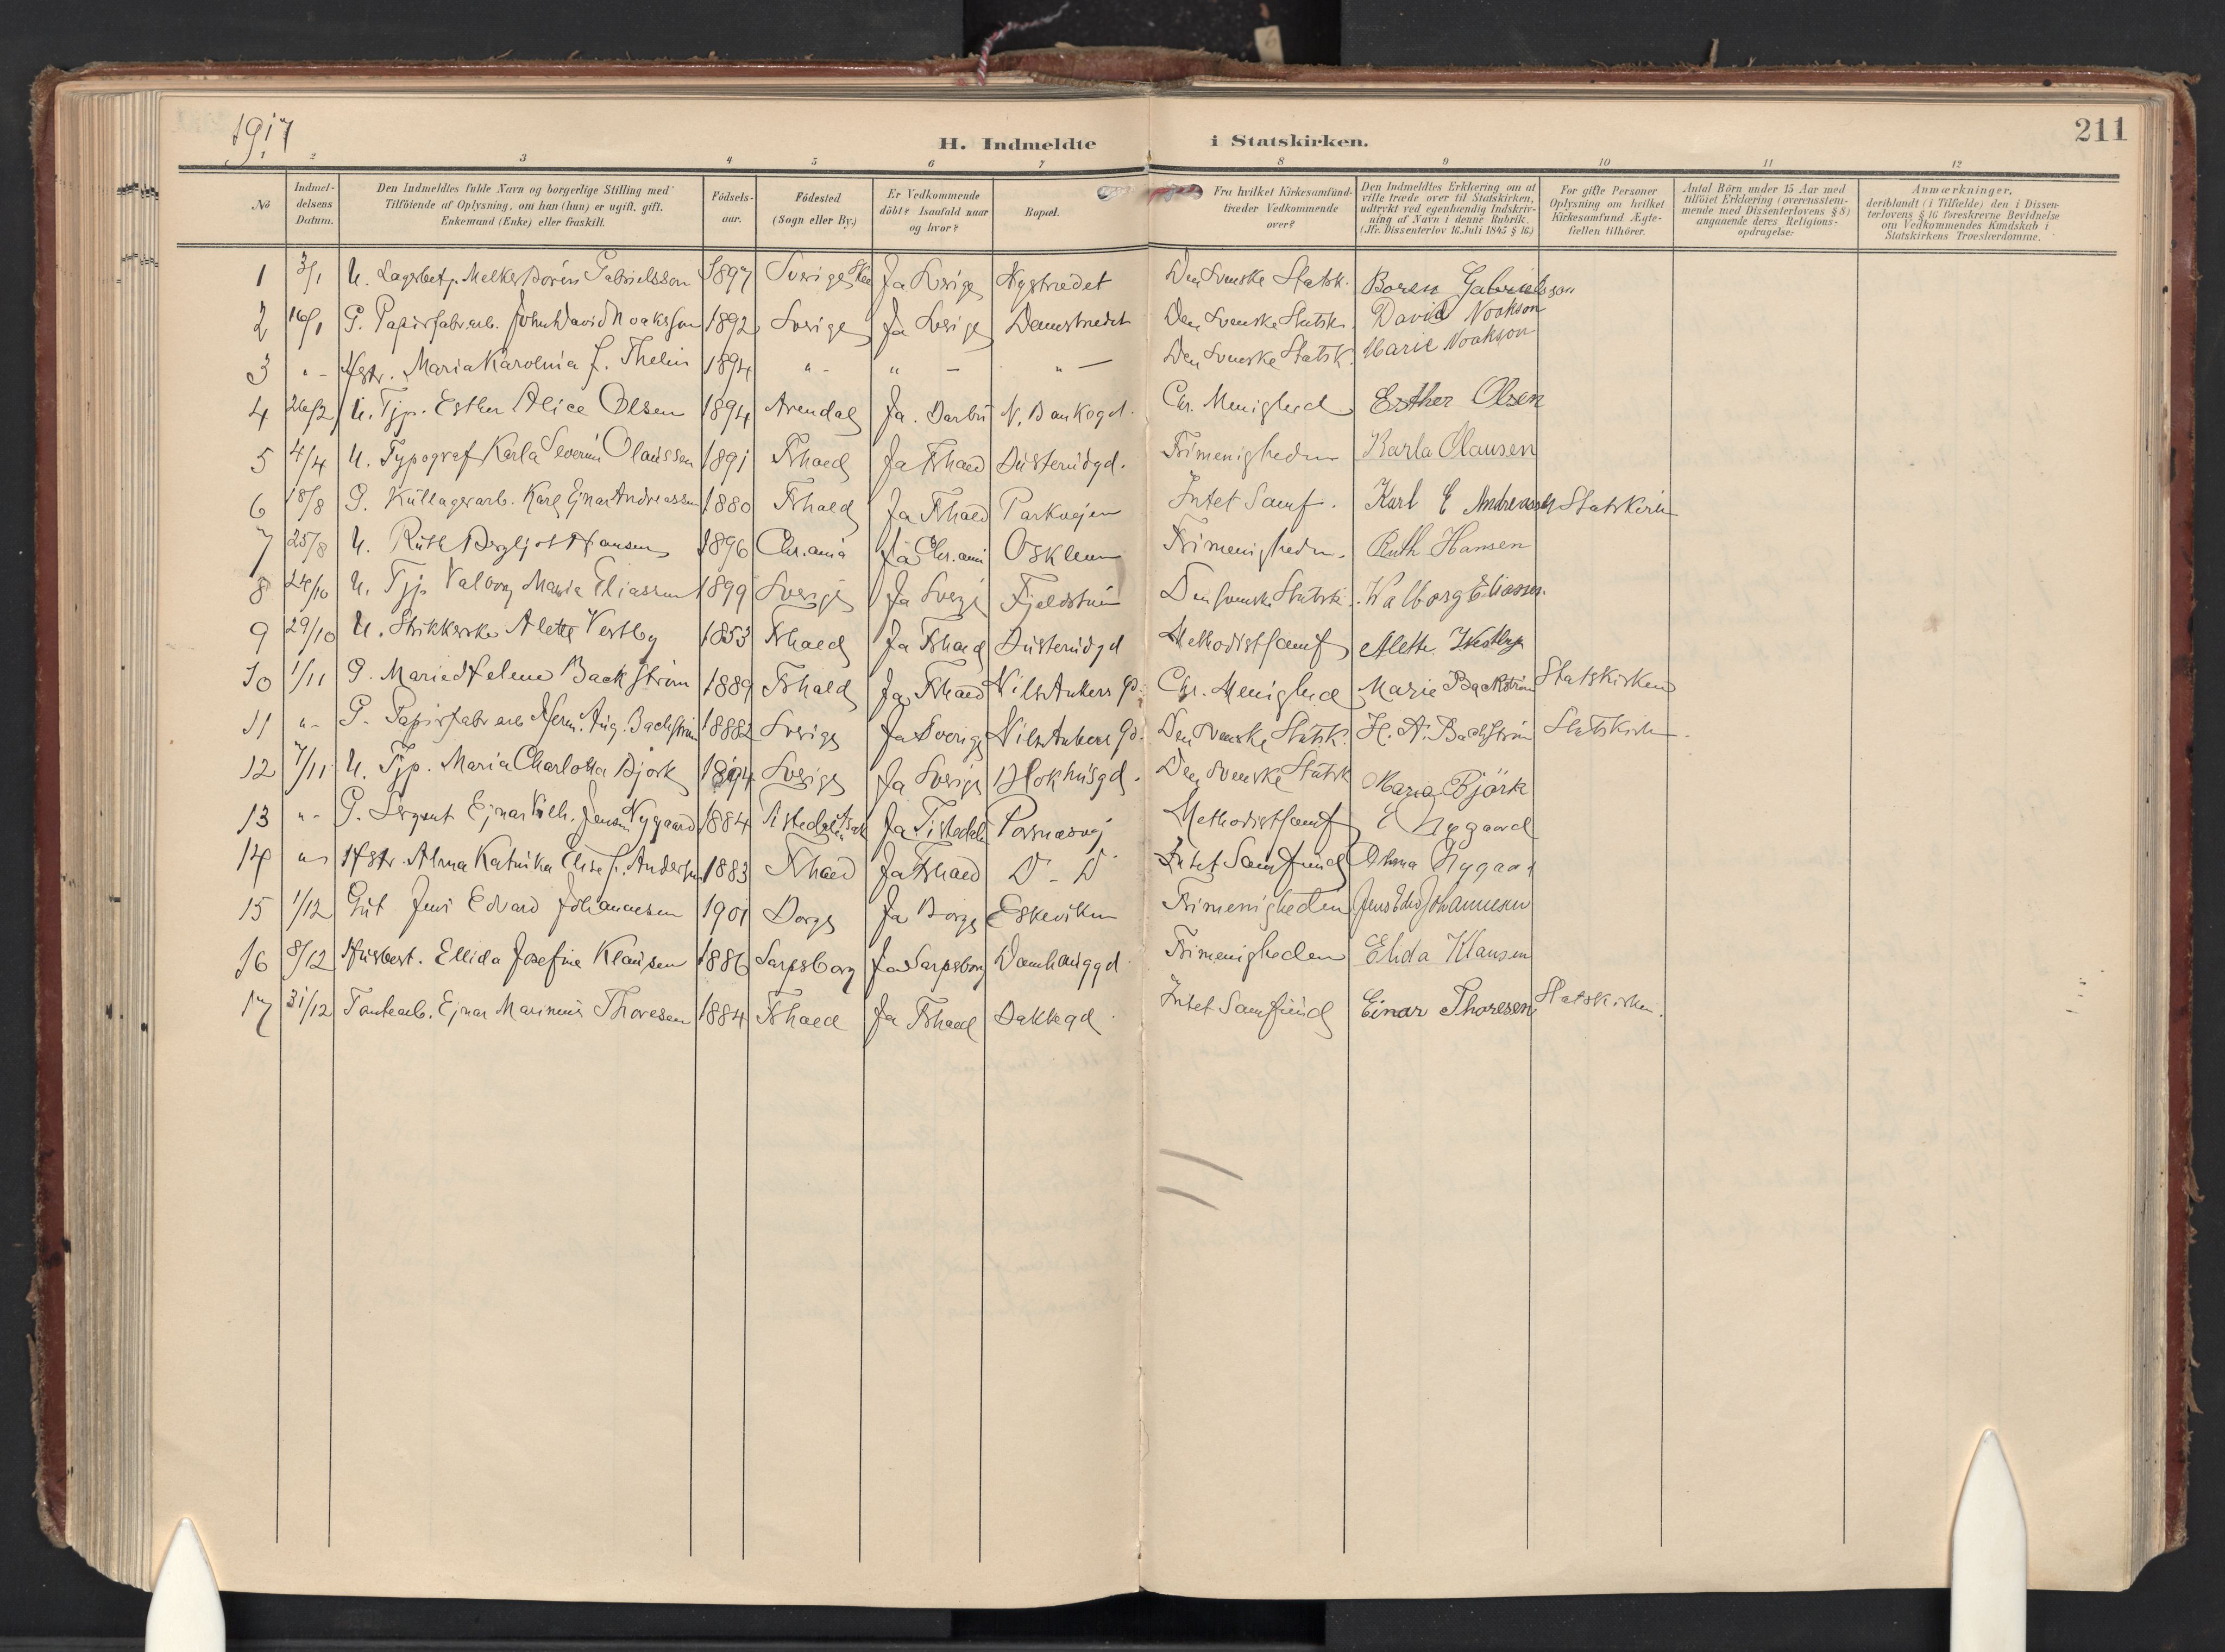 1917
H. Indmeldte i Statskirken.
211
1 2 3 4 5 6 7 8 9 10 11 12
No
Indmel-
delsens
Datum.
Den Indmeldtes fulde Navn og borgerlige Stilling med
Tilföiende af Oplysning, om han (hun) er ugift, gift,
Enkemand (Enke) eller fraskilt.
Födsels-
aar.
Födested
(Sogn eller By.)
Er Vedkommende
döbt? Isaafald naar
og hvor?
Bopæl.
Fra hvilket Kirkesamfund
træder Vedkommende
over?
Den Indmeldtes Erklæring om at
ville træde over til Statskirken,
udtrykt ved egenhændig Indskriv-
ning af Navn i denne Rubrik.
(Jfr. Dissenterlov 16. Juli 1845 § 16.)
For gifte Personer
Oplysning om hvilket
Kirkesamfund Ægte-
fællen tilhörer.
Antal Börn under 15 Aar med
tilföiet Erklæring (overensstem-
mende med Dissenterlovens § 8)
angaaende deres Religions-
opdragelse.
Anmærkninger,
deriblandt (i Tilfælde) den i Dissen-
terlovens § 16 foreskrevne Bevidnelse
om Vedkommendes Kundskab i
Statskirkens Troeslærdomme.
1 3/1 U. Lagerbetj. Melker Boren Gabrielsson 1897 Sverige Ja Sverige Nystrædet Den Svenske Statsk. Boren Gabrielsson
2 16/1 G. Papirfabr.arb. John David Noaksson 1892 Sverige Ja Sverige Damstrædet Den Svenske Statsk. David Noakson
3 " - Hstr. Maria Karolinia f. Thelin 1894 " - " - " - Den Svenske Statsk. Marie Noakson
4 26/2 U. Tjp. Esther Alice Olsen 1894 Arendal Ja. Barbu N. Bankegd. Chr. Menighed Esther Olsen
5 4/4 U. Typograf Karla Severin Olaussen 1891 Frhald Ja Frhald Busterudgd. Frimenigheden Karla Olausen
6 18/8 G. Kullagerarb. Karl Ejnar Andreassen 1880 Frhald Ja Frhald Parkvejen Intet Samf. Karl E Andreassen Statskirken
7 25/8 U. Ruth Bergljot Hansen 1896 Chr.ania Ja Chr.ania Oskleven Frimenigheden. Ruth Hansen
8 24/10 U. Tjp Valborg Maria Eliassen 1899 Sverige Ja Sverige Fjeldstuen Den Svenske Statsk. Walborg Eliassen.
9 29/10 U. Strikkerske Alette Vestby 1853 Frhald Ja Frhald Busterudgd Methodistsamf Alette Westby
10 1/11 G. Marie Helene Backström 1889 Frhald Ja Frhald Nils Ankers Gd. Chr. Menighed Marie Backström Statskirken
11 " - G. Papirfabr arb Herm. Aug. Backström 1882 Sverige Ja Sverige Nils Ankers Gd. Den Svenske Statsk. H. A. Backström Statskirken
12 7/11 U. Tjp. Maria Charlotta Bjork 1894 Sverige Ja Sverige Blokhusgd. Den Svenske Statsk Maria Björk
13 " - G. Sergeant Ejnar Vilh. Jensen Nygaard 1884 Tistedalen Ja Tistedalen Porsnesvej Methodistsamf E Nygaard
14 " - Hstr. Alma Katinka Elise f. Andersen 1883 Frhald Ja Frhald D - D Intet Samfund Alma Nygaard
15 1/12 Gut Jens Edvard Johannesen 1901 Borge Ja Borge Eskeviken Frimenigheden Jens Edv Johannesen
16 8/12 Husbest. Ellida Josefine Klausen 1886 Sarpsborg Ja Sarpsborg Damhauggd Frimenigheden Elida Klausen
17 31/12 Tomtearb. Ejnar Marinius Thoresen 1884 Frhald Ja Frhald Bakkegd. Intet Samfund Einar Thoresen Statskirken.